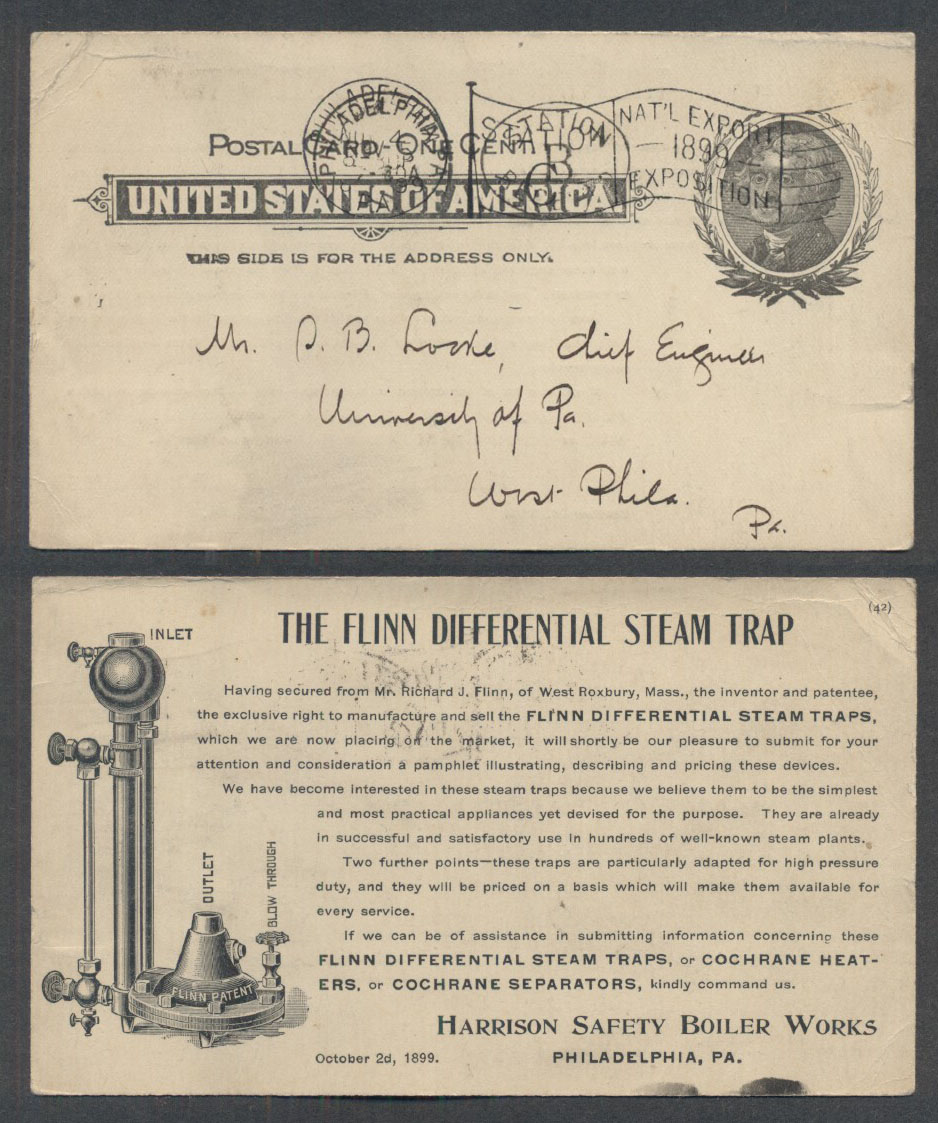 POSTAL CARD – ONE CENT
UNITED STATES OF AMERICA.
THIS SIDE IS FOR THE ADDRESS ONLY.
PHILADELPHIA
PA
STATION
B
NAT'L EXPORT
1899
EXPOSITION
Mr. S. B. Locke, Chief Engineer
University of Pa.
West Phila.
Pa.
(42)
THE FLINN DIFFERENTIAL STEAM TRAP
INLET
Having secured from Mr. Richard J. Flinn, of West Roxbury, Mass., the inventor and patentee,
the exclusive right to manufacture and sell the FLINN DIFFERENTIAL STEAM TRAPS,
which we are now placing on the market, it will shortly be our pleasure to submit for your
attention and consideration a pamphlet illustrating, describing and pricing these devices.
We have become interested in these steam traps because we believe them to be the simplest
and most practical appliances yet devised for the purpose. They are already
in successful and satisfactory use in hundreds of well-known steam plants.
Two further points—these traps are particularly adapted for high pressure
duty, and they will be priced on a basis which will make them available for
every service.
If we can be of assistance in submitting information concerning these
FLINN DIFFERENTIAL STEAM TRAPS, or COCHRANE HEAT-
ERS, or COCHRANE SEPARATORS, kindly command us.
OUTLET
BLOW THROUGH
FLINN PATENT
HARRISON SAFETY BOILER WORKS
October 2d, 1899.
PHILADELPHIA, PA.